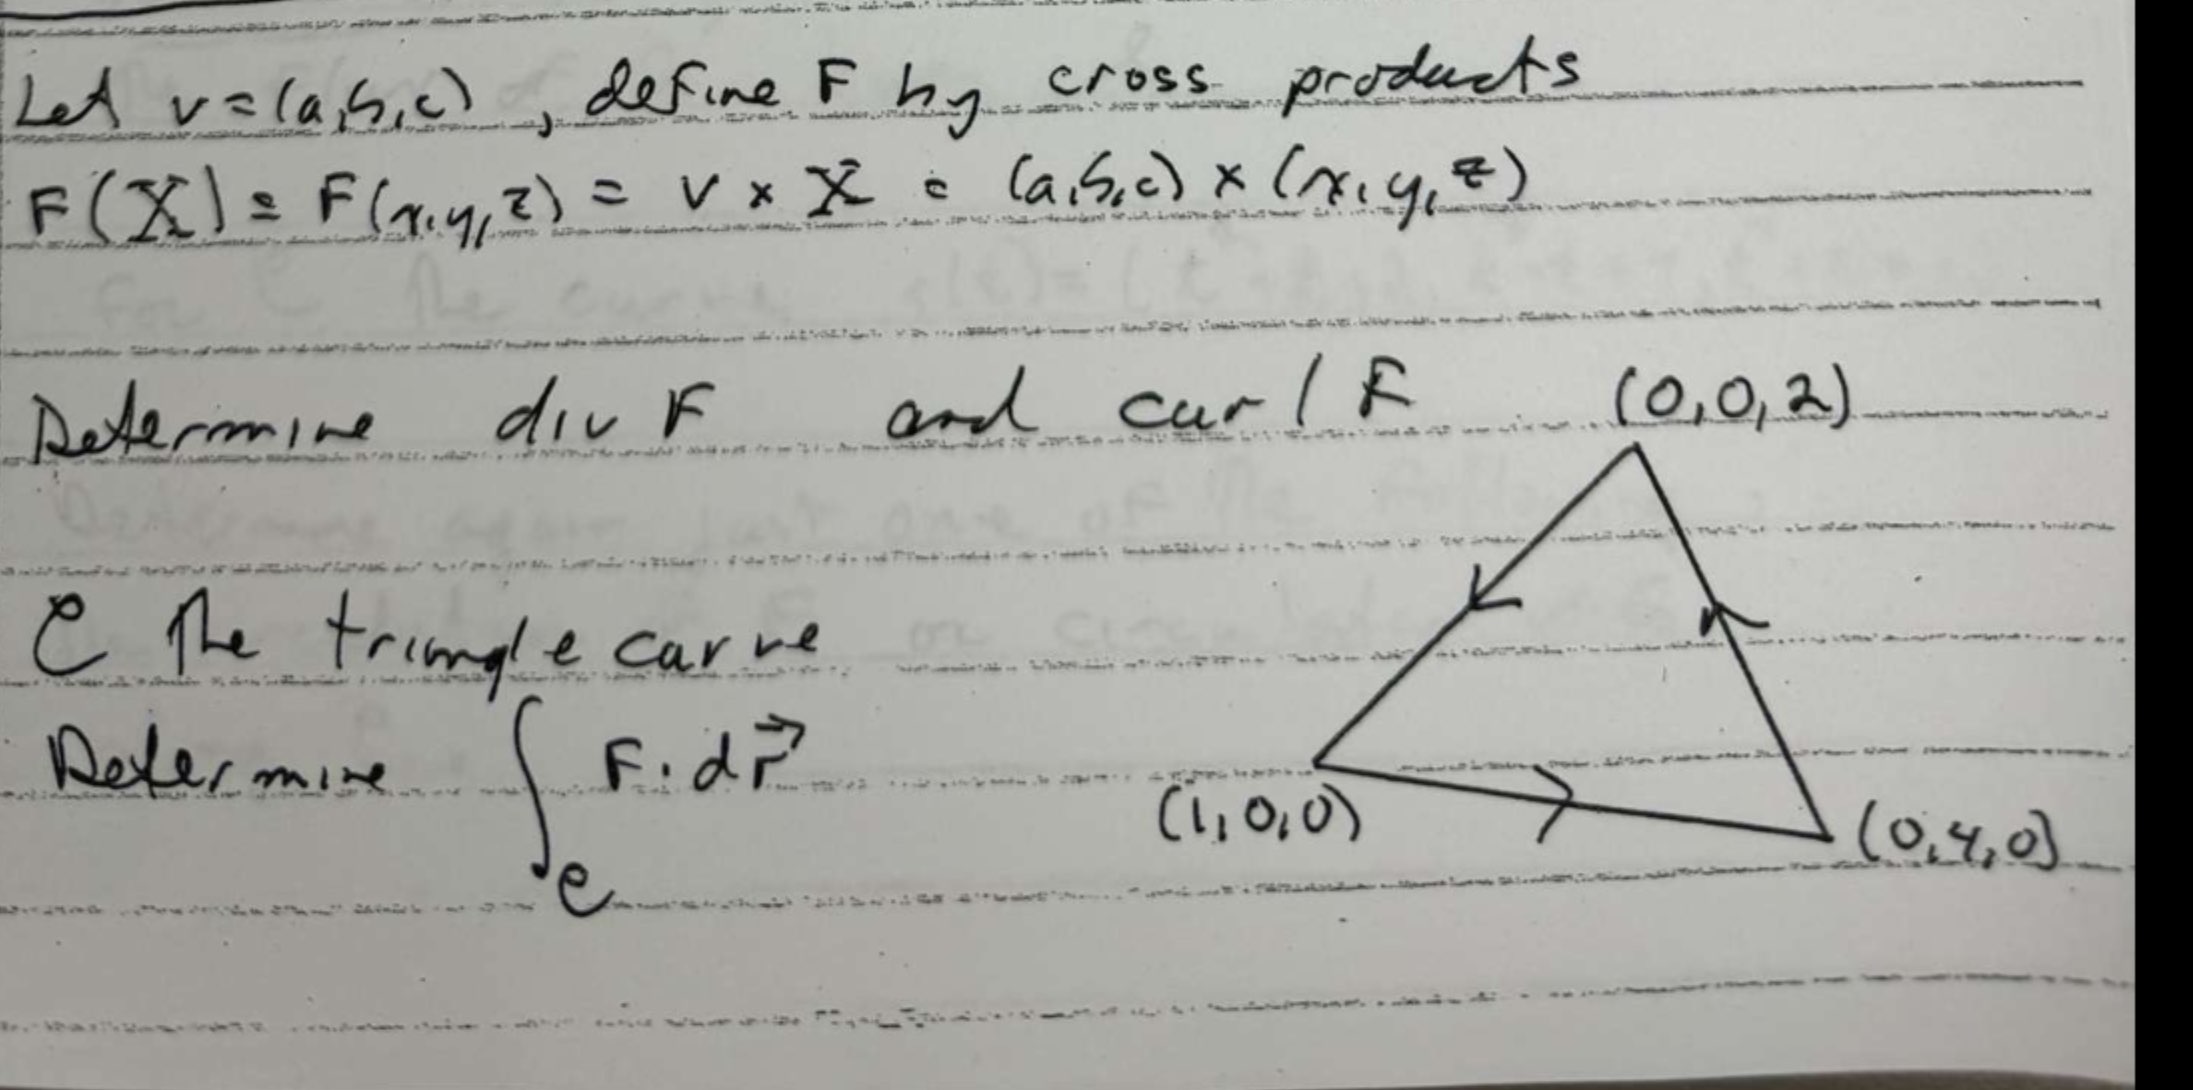 Let v = (a,b,c), define F by cross products
F(X) = F(x,y,z) = v × X = (a,b,c) × (x,y,z)
Determine div F and curl F
(0,0,2)
C the triangle curve
Determine ∫_C F·dr⃗
(1,0,0)
(0,4,0)